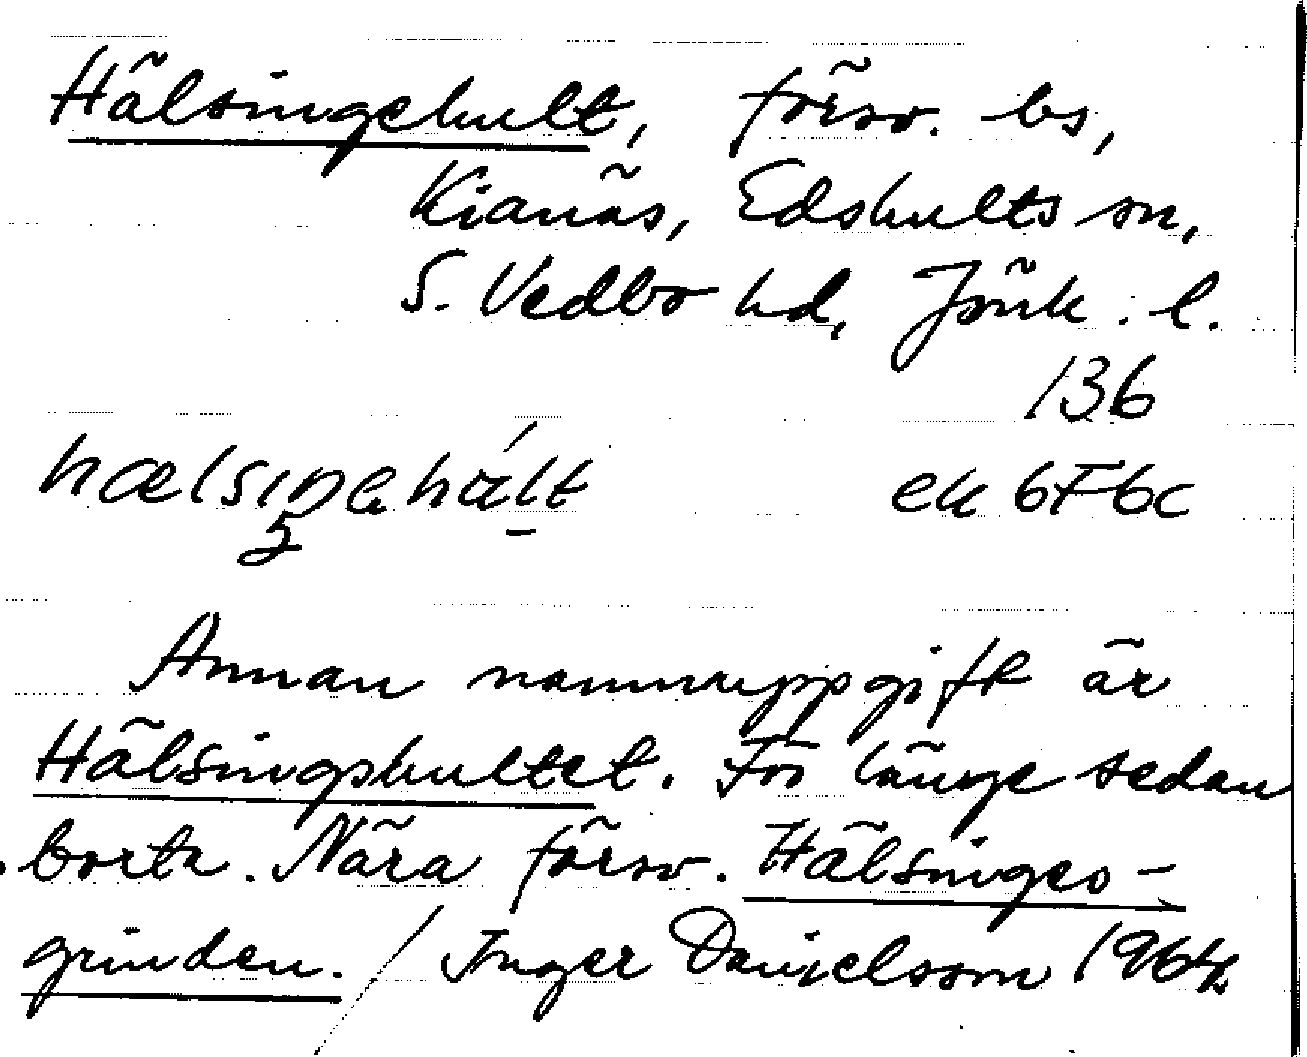 Hälsingehult, försv. bs,
Kianäs, Edshults sn,
S. Vedbo hd, Jönk. l.
136
ek 6F6c
Annan namnuppgift är
Hälsingshultet. För länge sedan
borta. Nära försv. Hälsinges-
grinden. / Inger Danielsson 1964